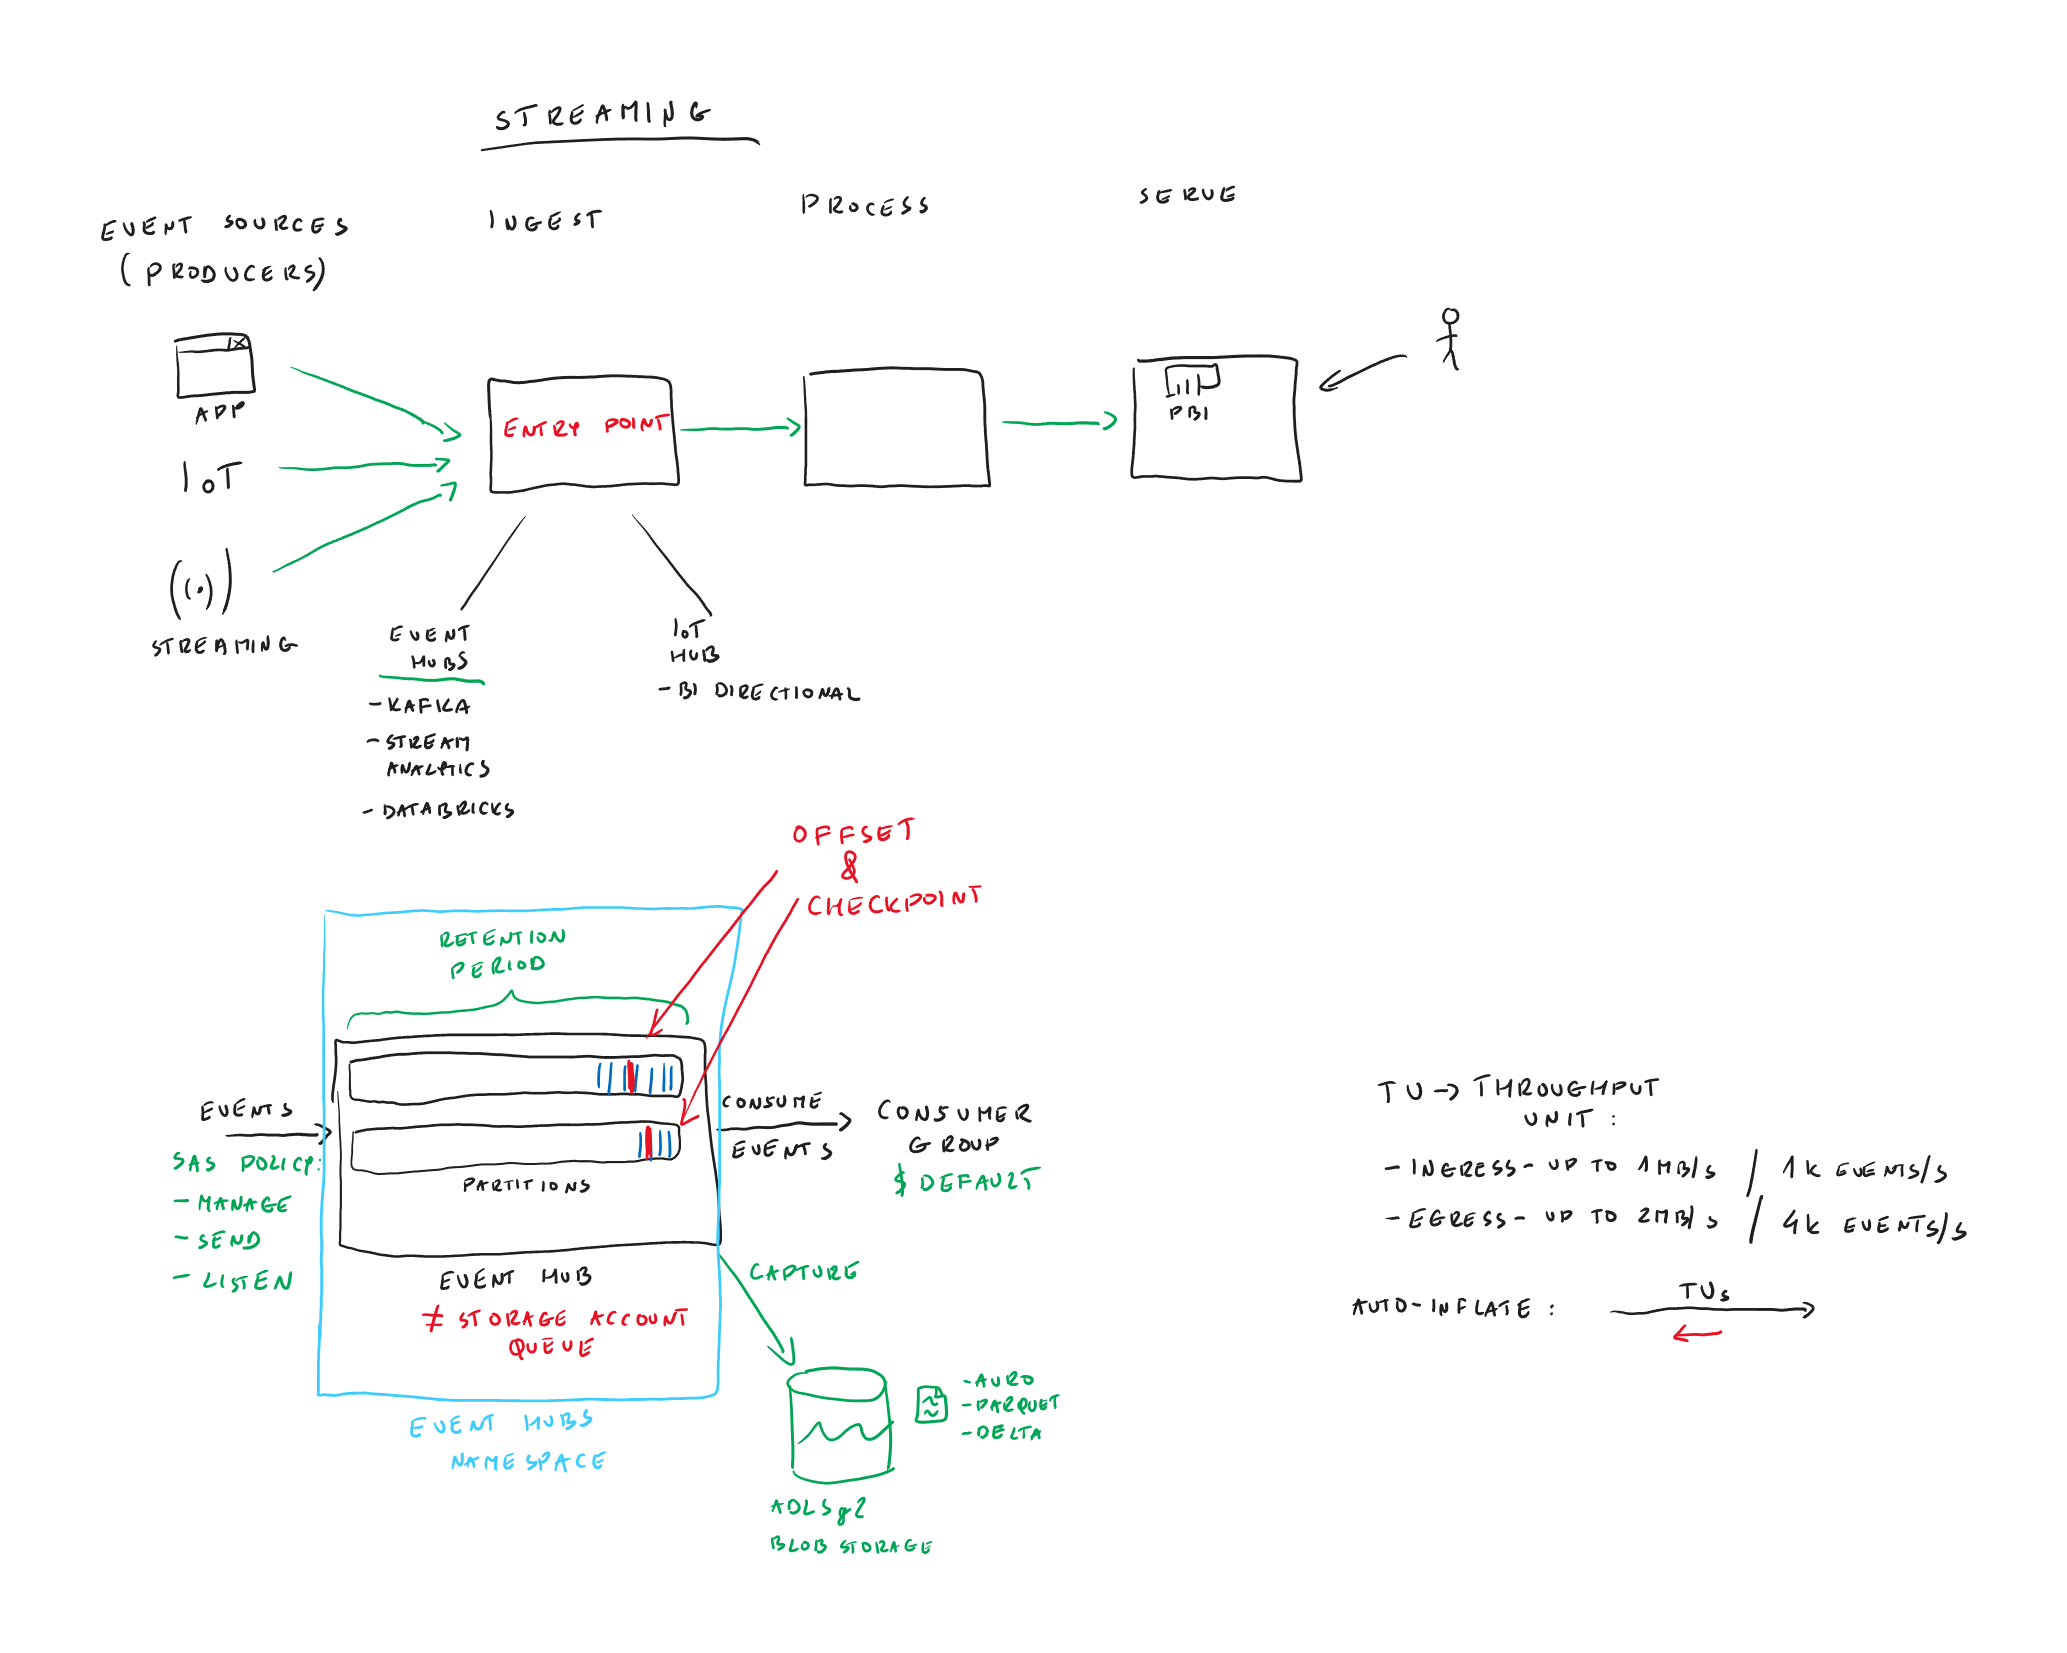 STREAMING
EVENT SOURCES
(PRODUCERS)
INGEST
PROCESS
SERVE
APP
IoT
STREAMING
ENTRY POINT
PBI
EVENT
HUBS
- KAFKA
- STREAM
ANALYTICS
- DATABRICKS
IoT
HUB
- BI DIRECTIONAL
OFFSET
&
CHECKPOINT
RETENTION
PERIOD
EVENTS
SAS POLICY:
- MANAGE
- SEND
- LISTEN
PARTITIONS
EVENT HUB
≠ STORAGE ACCOUNT
QUEUE
EVENT HUBS
NAMESPACE
CONSUME
EVENTS
CONSUMER
GROUP
$ DEFAULT
CAPTURE
- AVRO
- PARQUET
- DELTA
ADLSg2
BLOB STORAGE
TU → THROUGHPUT
UNIT:
- INGRESS - UP TO 1MB/s / 1K EVENTS/s
- EGRESS - UP TO 2MB/s / 4K EVENTS/s
AUTO-INFLATE:
TUs